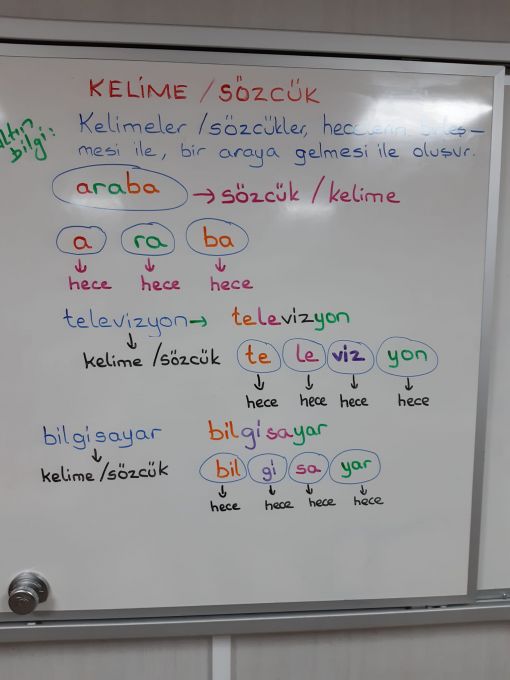 KELİME / SÖZCÜK
altın bilgi:
Kelimeler / sözcükler, hecelerin birleş-
mesi ile, bir araya gelmesi ile oluşur.
araba → sözcük / kelime
a ra ba
hece hece hece
televizyon → televizyon
kelime / sözcük te le viz yon
hece hece hece hece
bilgisayar bilgisayar
kelime / sözcük bil gi sa yar
hece hece hece hece